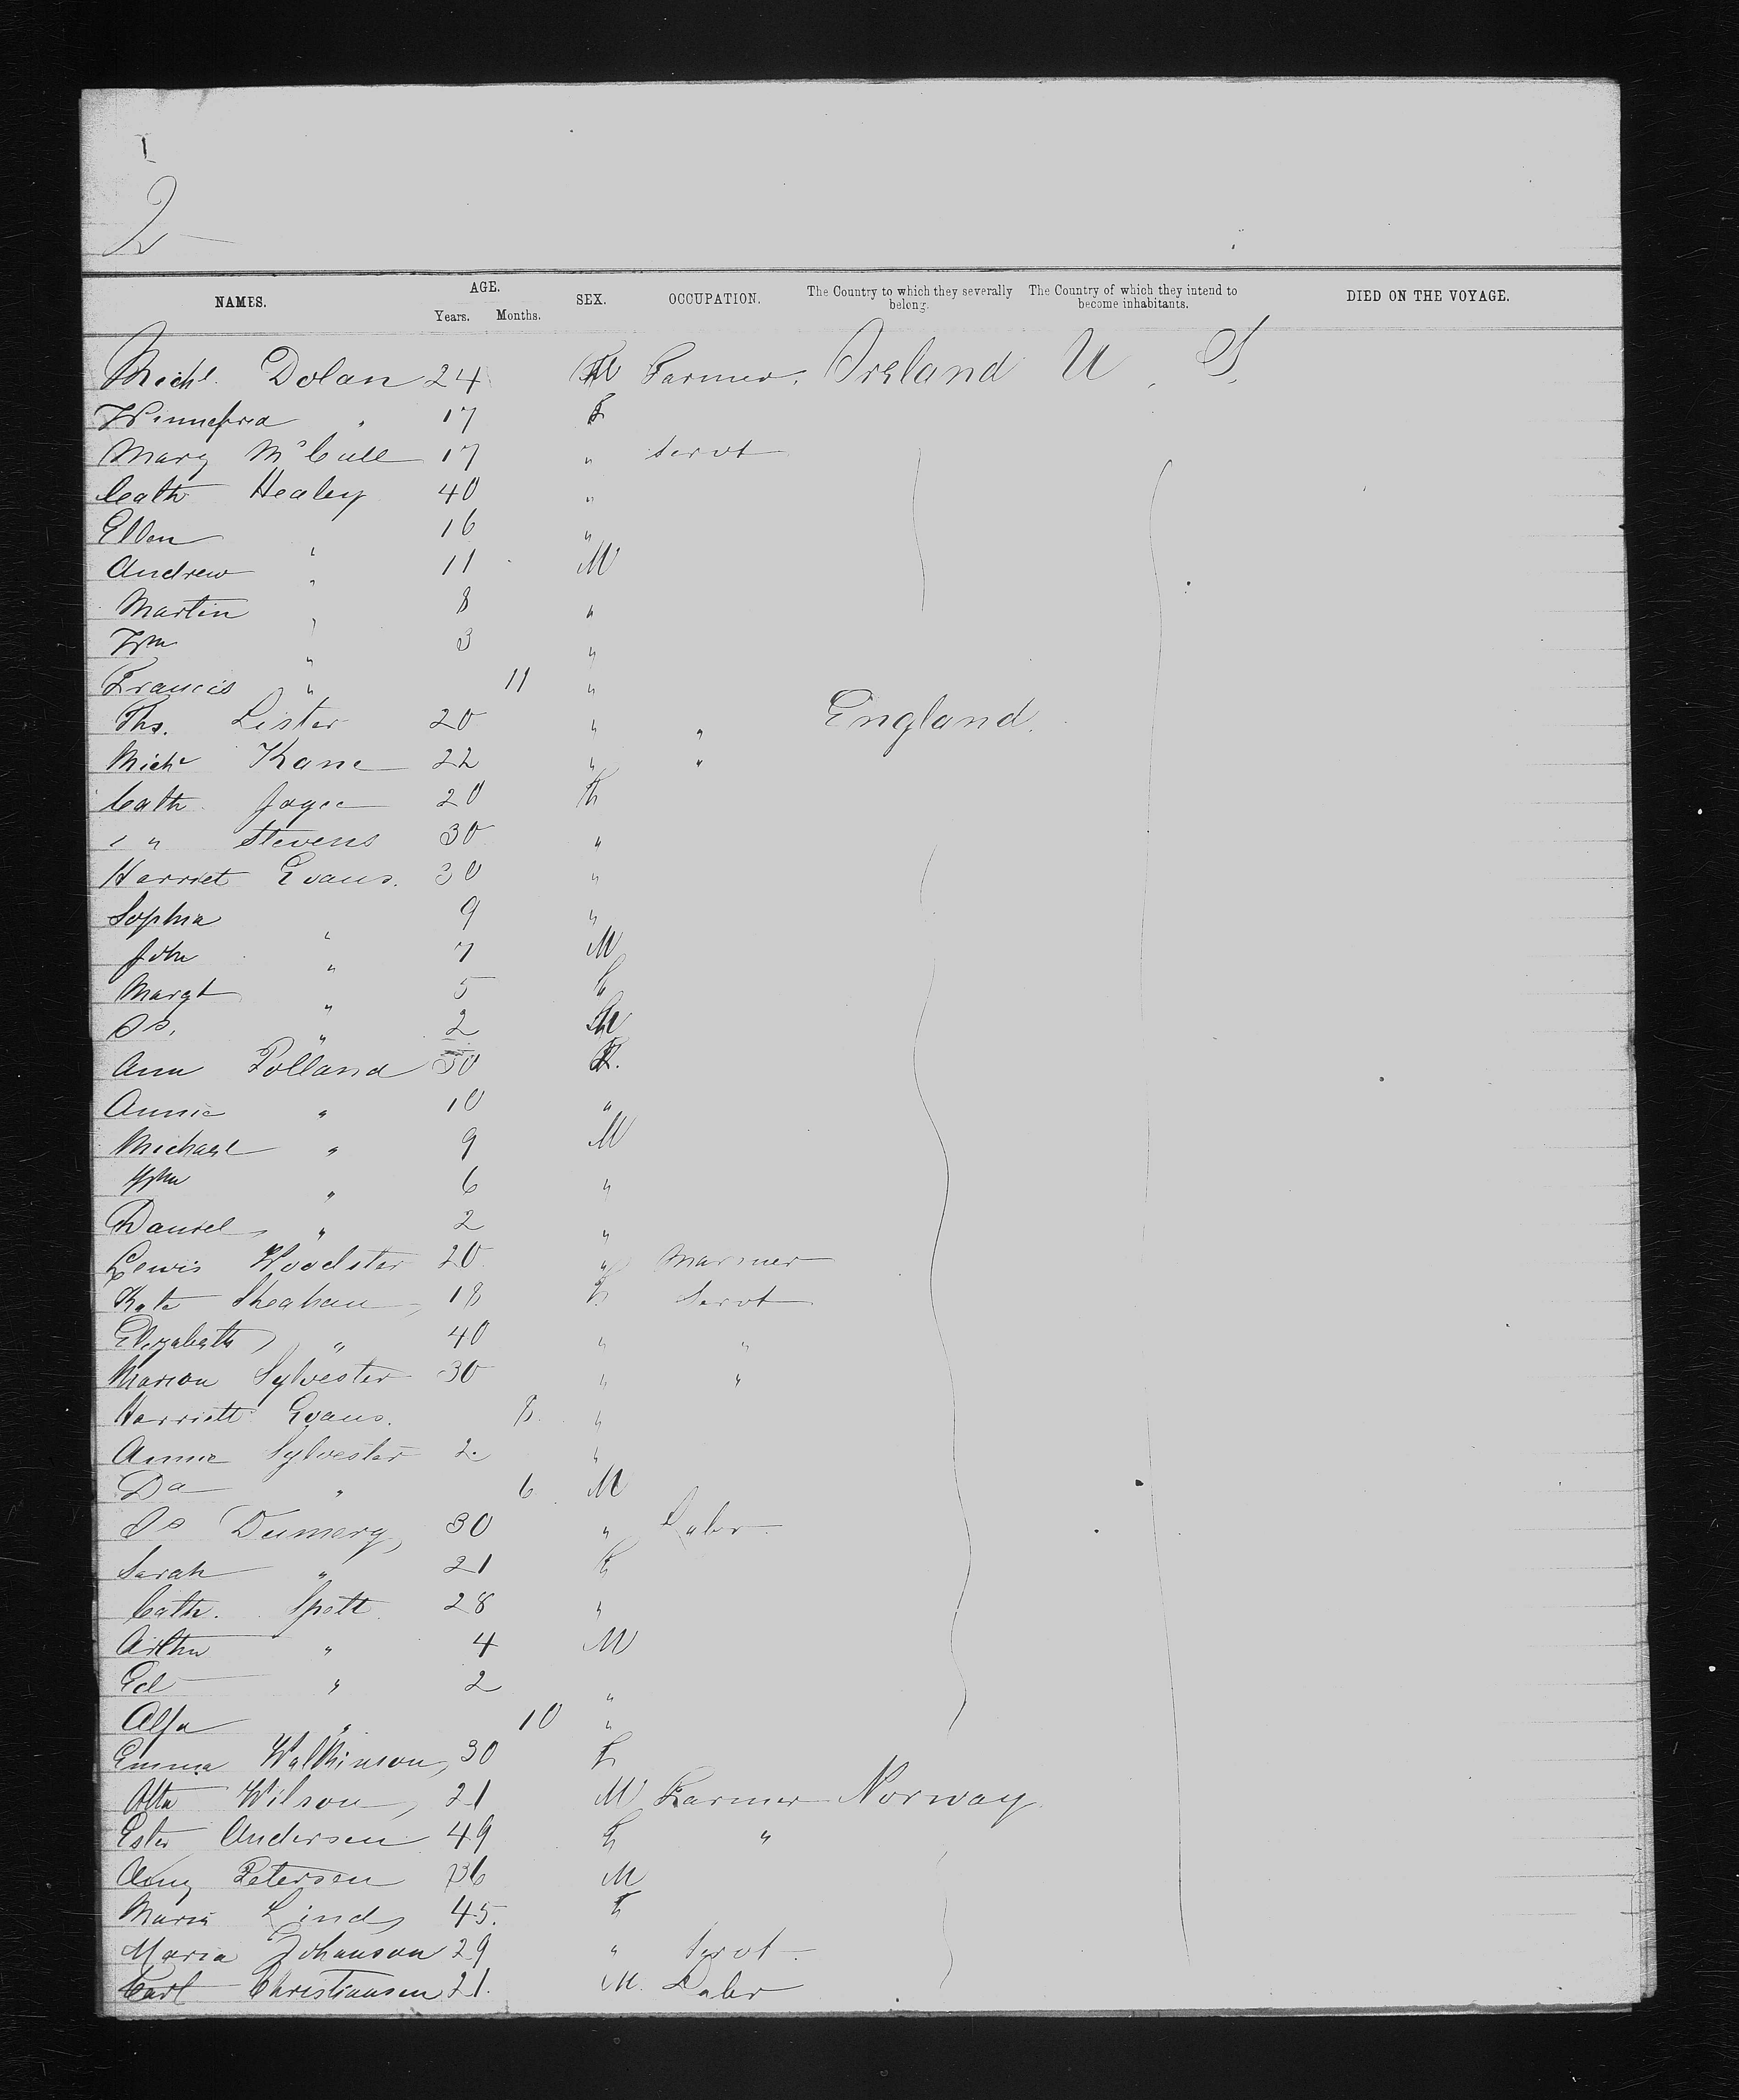 1
2
NAMES. AGE. Years. Months. SEX. OCCUPATION. The Country to which they severally belong. The Country of which they intend to become inhabitants. DIED ON THE VOYAGE.
Michl. Dolan 24 M Farmer. Ireland U. S.
Winnefred " 17 F
Mary McCull 17 " Servt
Cath Healey 40 "
Ellen " 16 "
Andrew " 11 M
Martin " 8 "
Wm " 3 "
Francis " 11 "
Ths. Lister 20 " " England.
Michl Kane 22 " "
Cath. Joyce 20 F
" " Stevens 30 "
Harriet Evans. 30 "
Sophia " 9 "
John " 7 M
Margt " 5 F
Js. " 2 M
Ann Polland 30 F.
Annie " 10 "
Michael " 9 M
Wm " 6 "
Daniel " 2 "
Lewis Woodster 20 " Mariner
Kate Sheahan 18 F. Servt
Elizabeth " 40 " "
Marion Sylvester 30 " "
Harriett Evans. 8. "
Annie Sylvester 2. "
Da " 6 M
Js Dumery, 30 " Labr
Sarah " 21 F
Cath. Spott 28 "
Arthur " 4 M
Ed " 2 "
Alfr " 10 "
Emma Walkinson, 30 F
Otto Wilson, 21 M Farmer Norway.
Ester Andersen 49 F "
Petersen 36 M
Maria Lind 45. F
Maria Johanson 29 " Servt.
Carl Christiansen 21. M. Labr